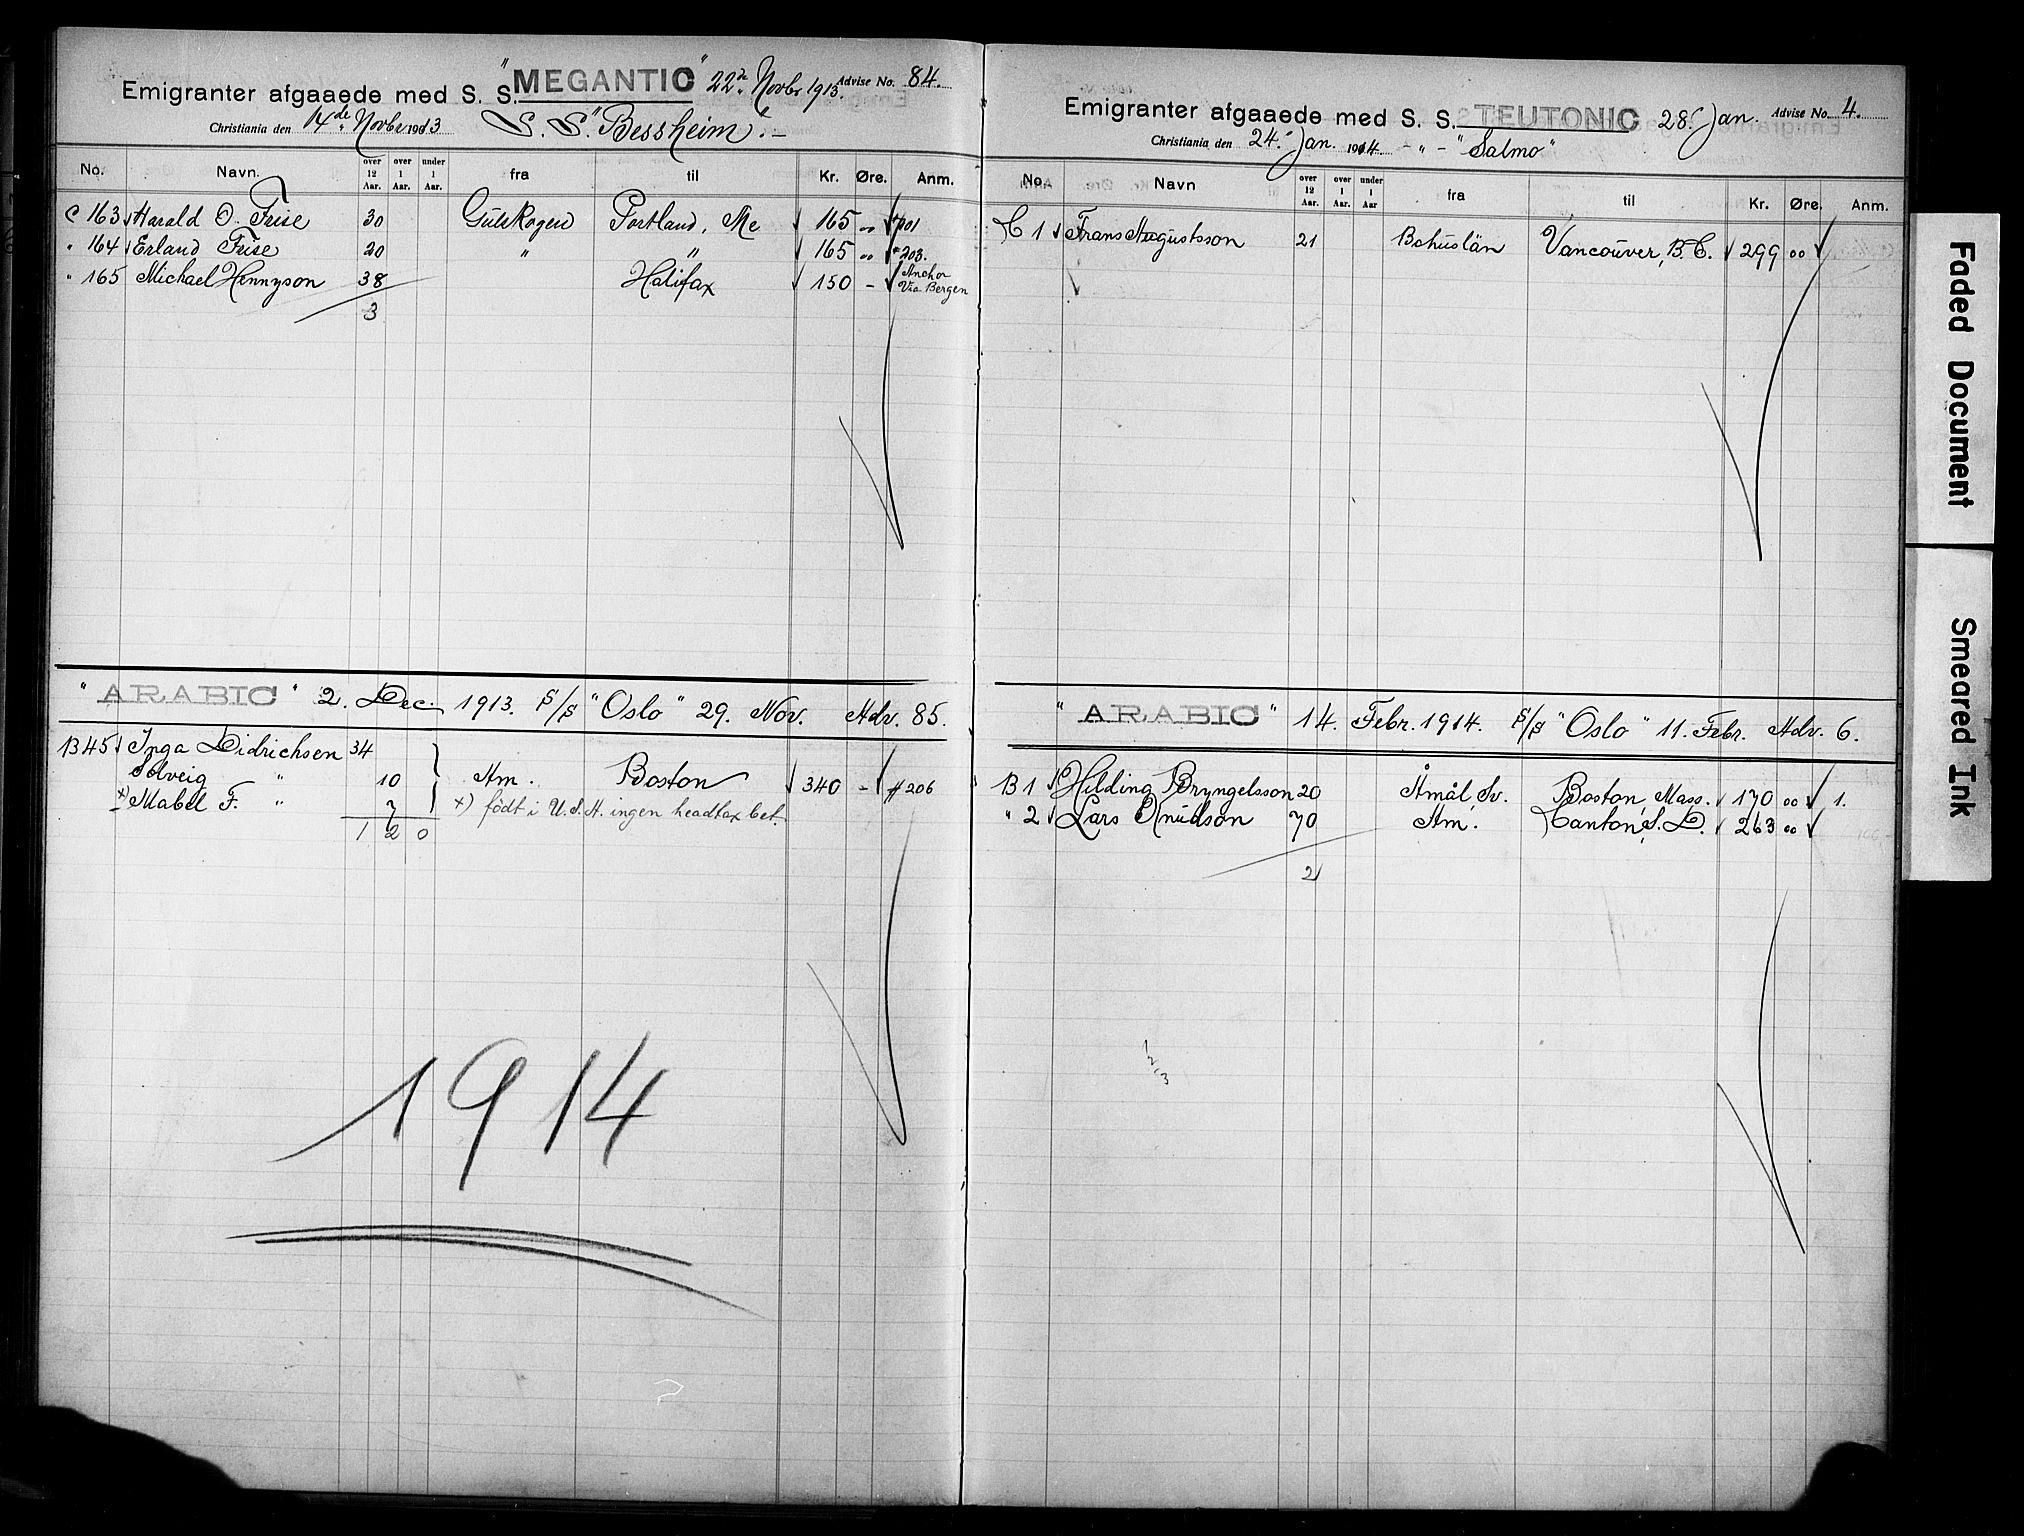 Emigranter afgaaede med S. S. "MEGANTIC" 22de Novbr 1913. Advise No. 84.
Christiania den 14de Novbr 1913 S. S. "Bessheim".-
No. Navn. over 12 Aar. over 1 Aar. under 1 Aar. fra til Kr. Øre. Anm.
C 163 Harald O. Friise 30 Gulskogen Portland, Me 165 00
" 164 Erland Friise 20 " " 165 00 203.
" 165 Michael Hennyson 38 Halifax 150 - Anchor
Via Bergen
3
"ARABIC" 2. Dec. 1913. S/S "Oslo" 29. Nov. Adv. 85.
B 45 Inga Didrichsen 34
Solveig " 10 Am. Boston 340 - # 206
x) Mabel F. " 7 x) født i U.S.A. ingen headtax bet.
1 2 0
1914
Emigranter afgaaede med S. S. TEUTONIC 28. Jan. Advise No. 4.
Christiania den 24. Jan. 1914. - " - "Salmo"
No. Navn over 12 Aar. over 1 Aar. under 1 Aar fra til Kr. Øre. Anm.
C 1 Frans Augustsson 21 Bohuslän Vancouver, B.C. 299 00
"ARABIC" 14. Febr. 1914. S/S "Oslo" 11. Febr. Adv. 6.
B 1 Hilding Bryngelsson 20 Åmål, Sv. Boston, Mass. 170 00 1.
" 2 Lars Knudson 70 Am. Canton, S.D. 263 00
2
Faded Document
Smeared Ink